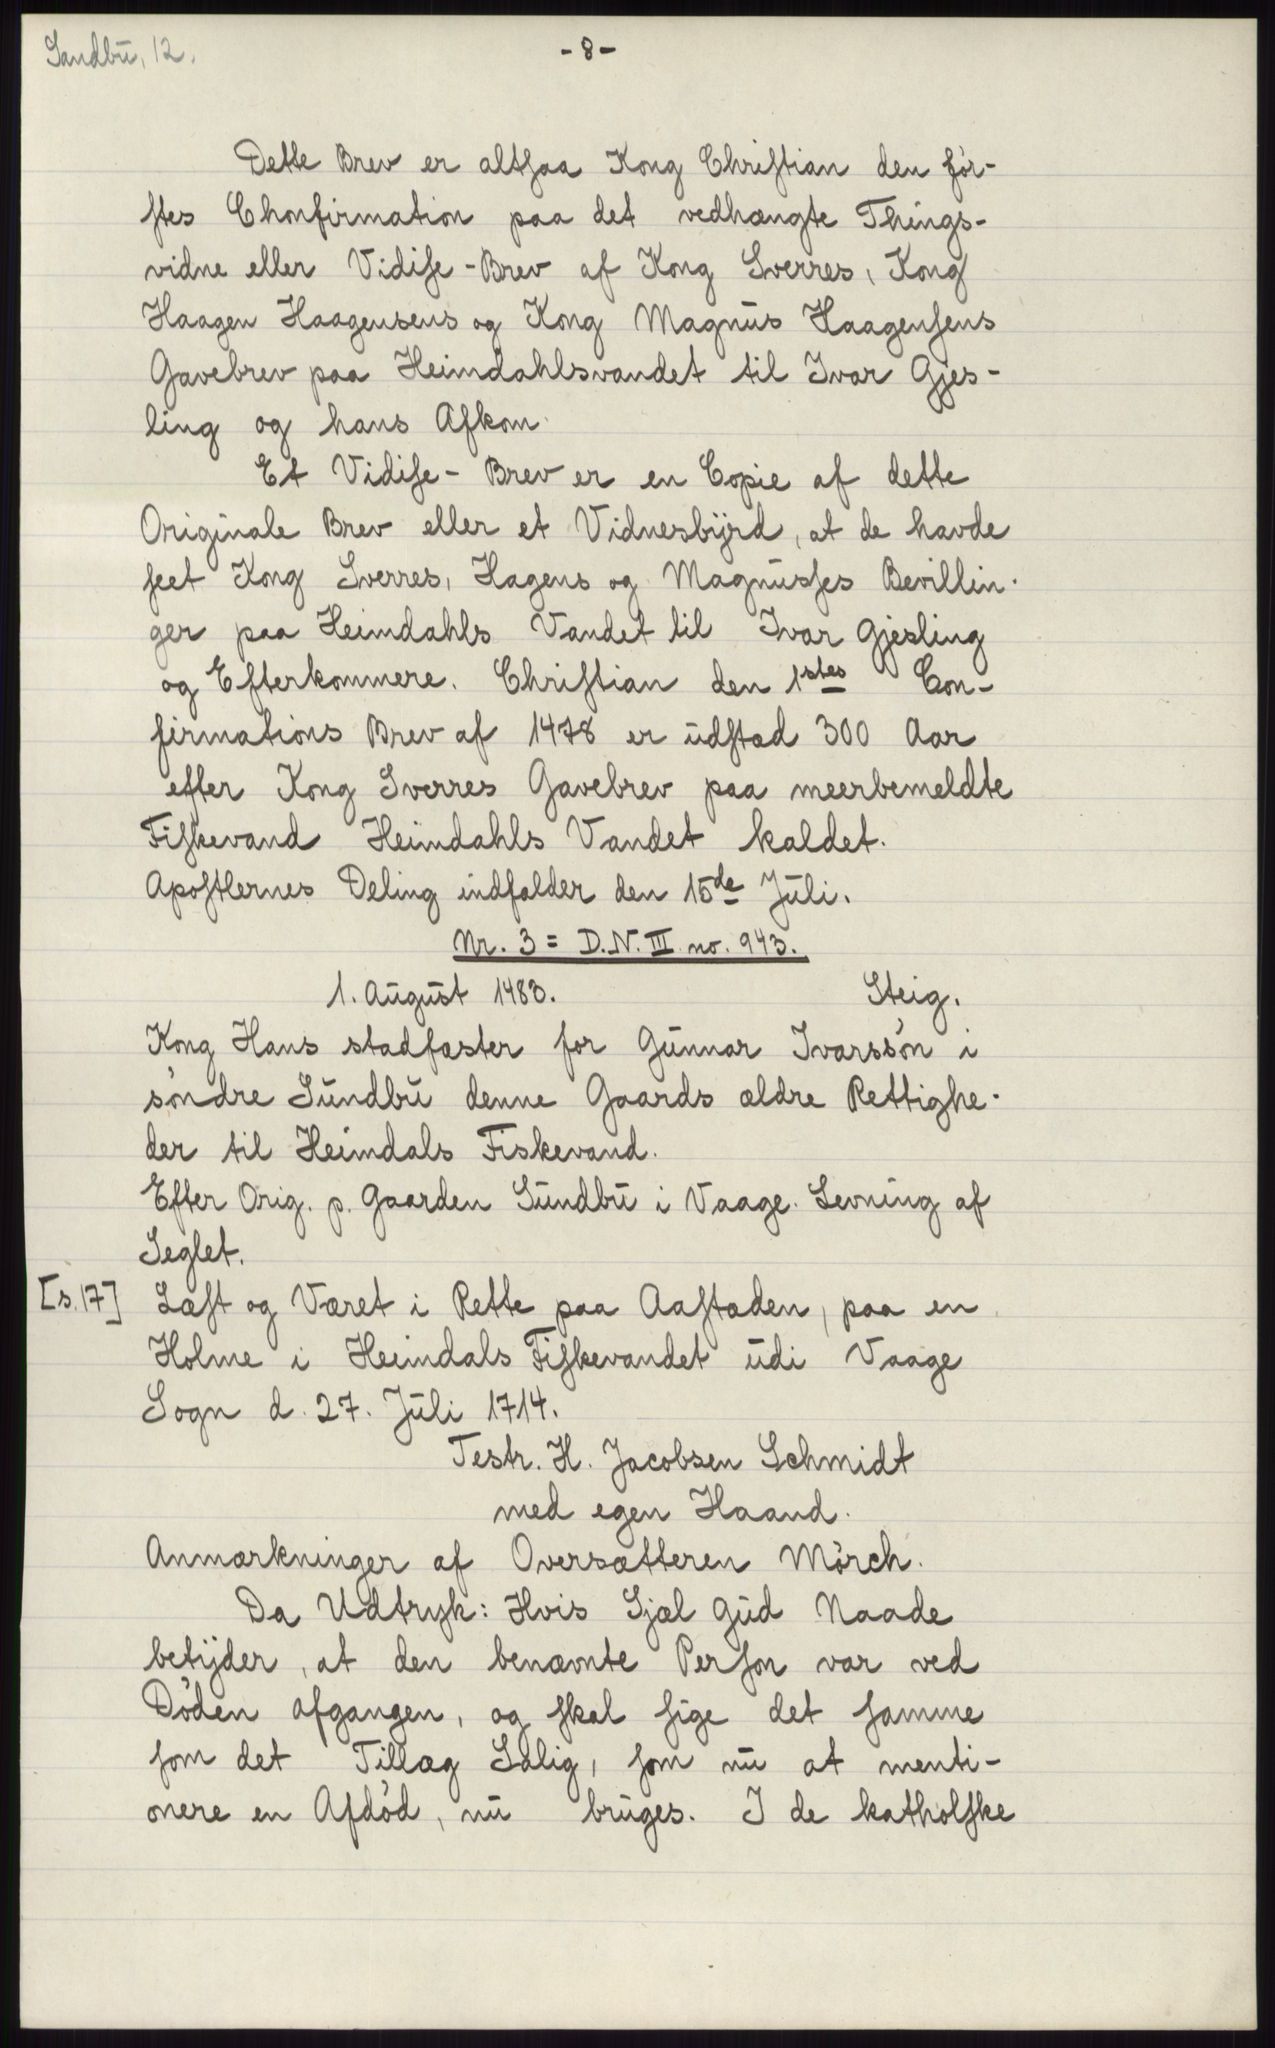 Sandbu, 12.
- 8 -
Dette Brev er altsaa Kong Christian den för-
stes Chonfirmation paa det vedhængte Things-
vidne eller Vidise - Brev af Kong Sverres, Kong
Haagen Haagensens og Kong Magnus Haagensens
Gavebrev paa Heimdahlsvandet til Ivar Gjes-
ling og hans Afkom.
Et Vidise - Brev er en Copie af dette
Originale Brev eller et Vidnesbÿrd, at de havde
seet Kong Sverres, Hagens og Magnusses Bevillin-
ger paa Heimdahls Vandet til Ivar Gjesling
og Efterkommere. Christian den 1stes Con-
firmations Brev af 1478 er udstæd 300 Aar
efter Kong Sverres Gavebrev paa meerbemeldte
Fiskevand Heimdahls Vandet kaldet.
Apostlernes Deling indfalder den 15de Juli.
Nr. 3 = D.N. III no. 943.
1. August 1483. Steig.
Kong Hans stadfæster for Gunnar Ivarssön i
söndre Sundbu denne Gaards ældre Rettighe-
der til Heimdals Fiskevand.
Efter Orig. p. Gaarden Sundbu i Vaage. Levning af
Seglet.
[s. 17] Læst og Været i Rette paa Aastæden, paa en
Holme i Heimdals Fiskevandet udi Vaage
Sogn d. 27. Juli 1714.
Testr. H. Jacobsen Schmidt
med egen Haand.
Anmærkninger af Oversætteren Mörch.
Da Udtryk: Hvis Sjæl Gud Naade
betÿder, at den benævnte Person var ved
Döden afgangen, og skal sige det samme
som det Tillæg Salig, som nu at menti-
onere en Afdöd, nu bruges. I de katholske